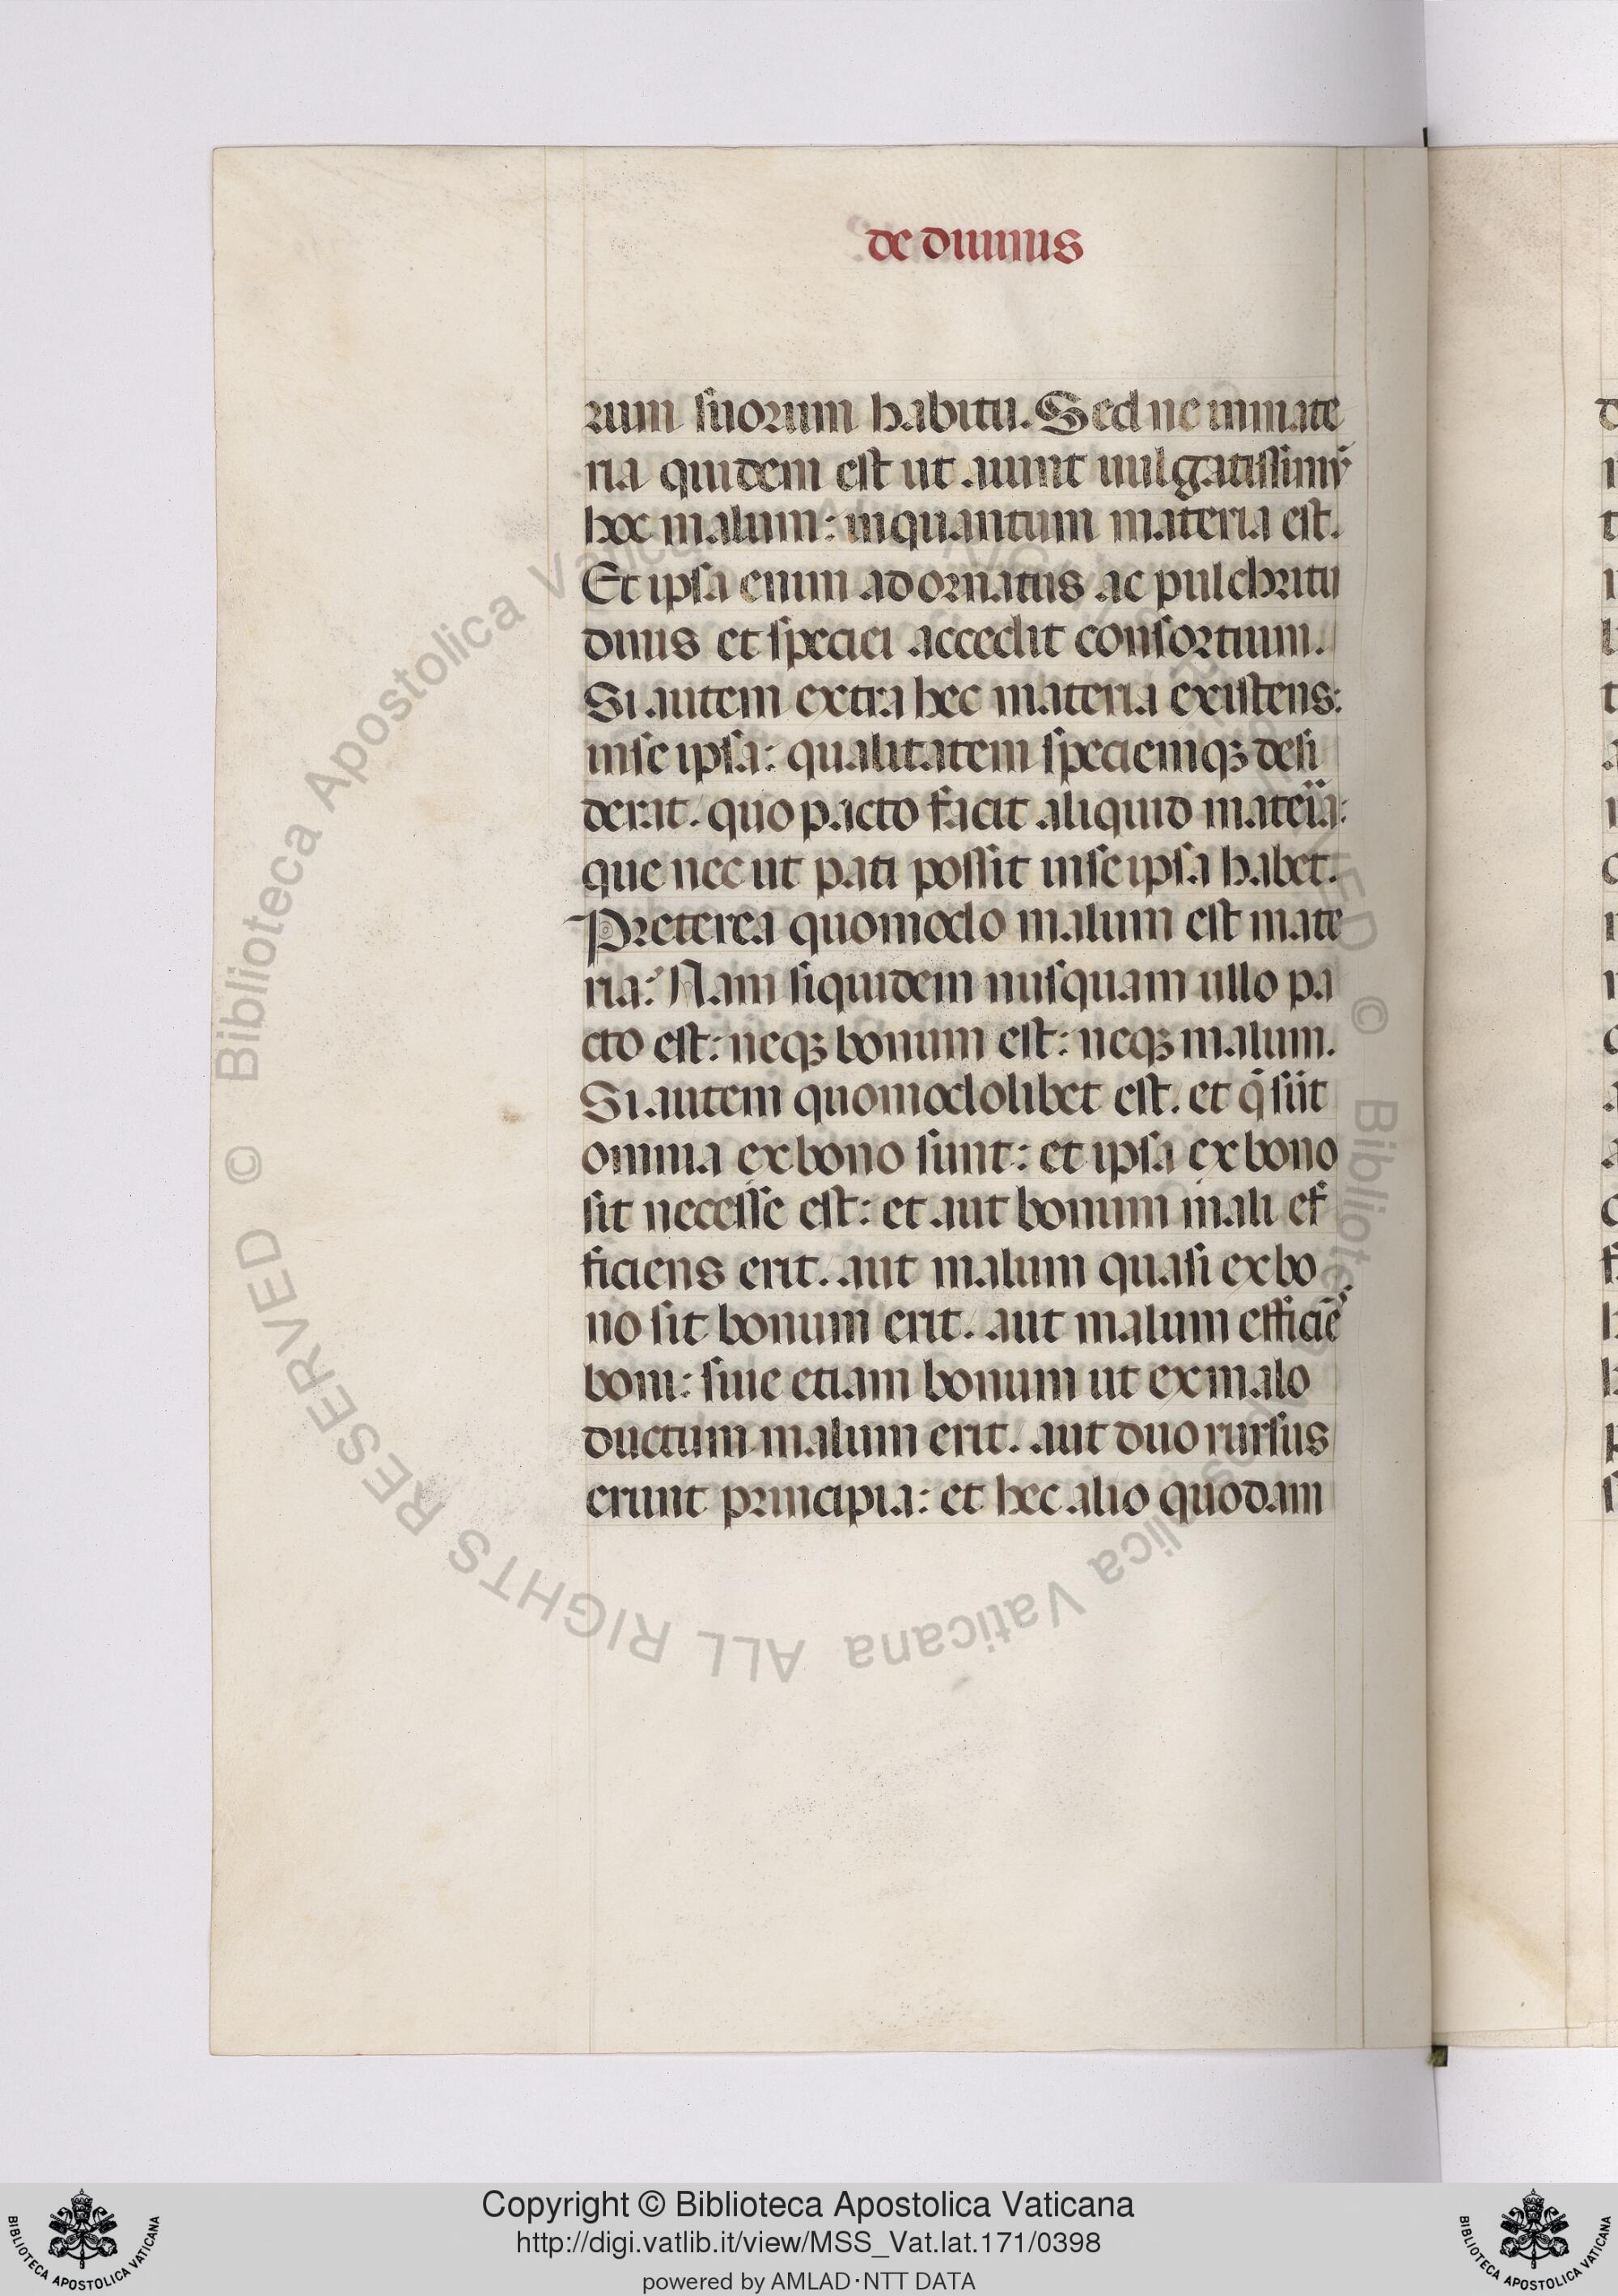 de diuinis
rum suorum habitu. Sed ne inmate
ria quidem est ut aiunt uulgatissimū
hoc malum: inquantum materia est.
Et ipsa enim ad ornatus ac pulchritu
dinis et speciei accedit consortium.
Si autem extra hec materia existens:
inse ipsa: qualitatem speciemqꝫ desi
derat. quo pacto facit aliquid materia:
que nec ut pati possit inse ipsa habet.
Preterea quomodo malum est mate
ria? Nam siquidem nusquam ullo pa
cto est: neqꝫ bonum est: neqꝫ malum.
Si autem quomodolibet est. et q̄ sūt
omnia ex bono sunt: et ipsa ex bono
sit necesse est: et aut bonum mali ef
ficiens erit. aut malum quasi ex bo
no sit bonum erit. aut malum efficiēs
boni: siue etiam bonum ut ex malo
ductum malum erit. aut duo rursus
erunt principia: et hec alio quodam
© Biblioteca Apostolica Vaticana ALL RIGHTS RESERVED © Biblioteca Apostolica Vaticana ALL RIGHTS RESERVED
Copyright © Biblioteca Apostolica Vaticana
http://digi.vatlib.it/view/MSS_Vat.lat.171/0398
powered by AMLAD·NTT DATA
BIBLIOTECA APOSTOLICA VATICANA
BIBLIOTECA APOSTOLICA VATICANA